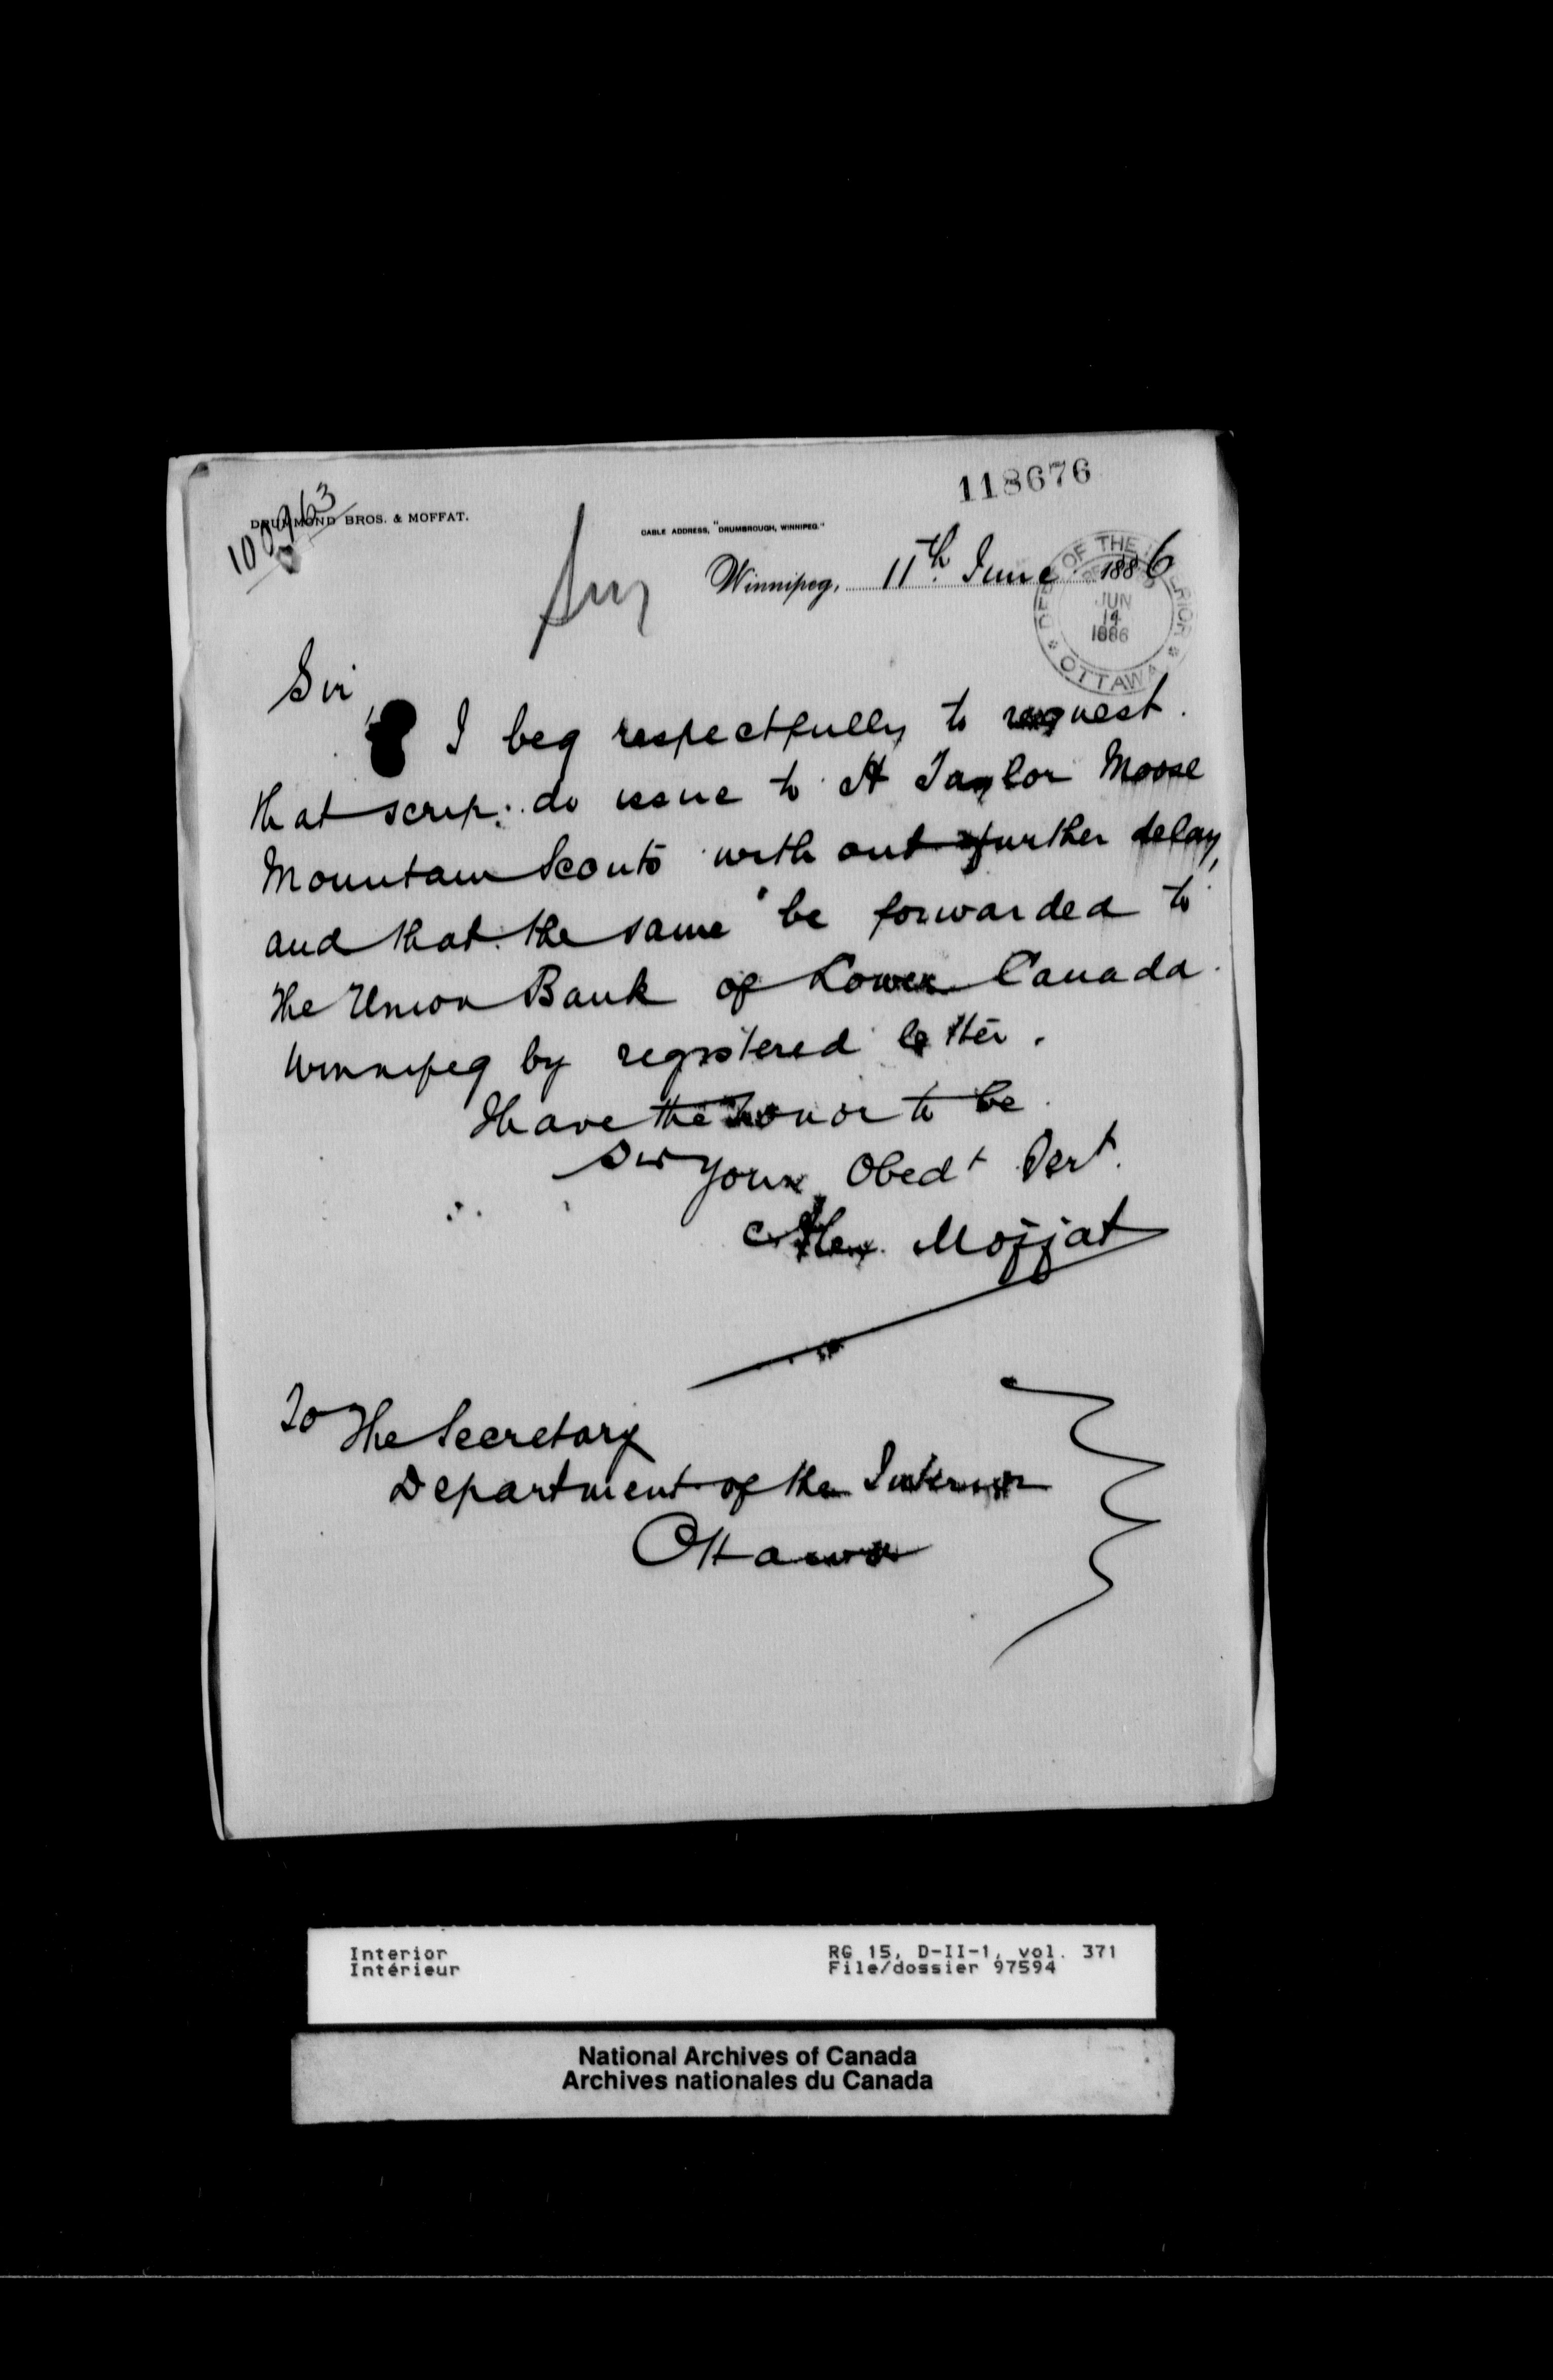 118676
DRUMMOND BROS. & MOFFAT.
CABLE ADDRESS, "DRUMBROUGH, WINNIPEG."
Winnipeg, 11th June 1886
DEPT OF THE INTERIOR
JUN
14
1886
OTTAWA
Sir,
I beg respectfully to request
that scrip do issue to A Taylor Moose
Mountain Scouts with out further delay,
and that the same be forwarded to
the Union Bank of Lower Canada
Winnipeg by registered letter.
I have the honor to be
Sir Your Obedt Servt.
Alex. Moffat
To The Secretary
Department of the Interior
Ottawa
Interior
Intérieur
RG 15, D-II-1, vol. 371
File/dossier 97594
National Archives of Canada
Archives nationales du Canada